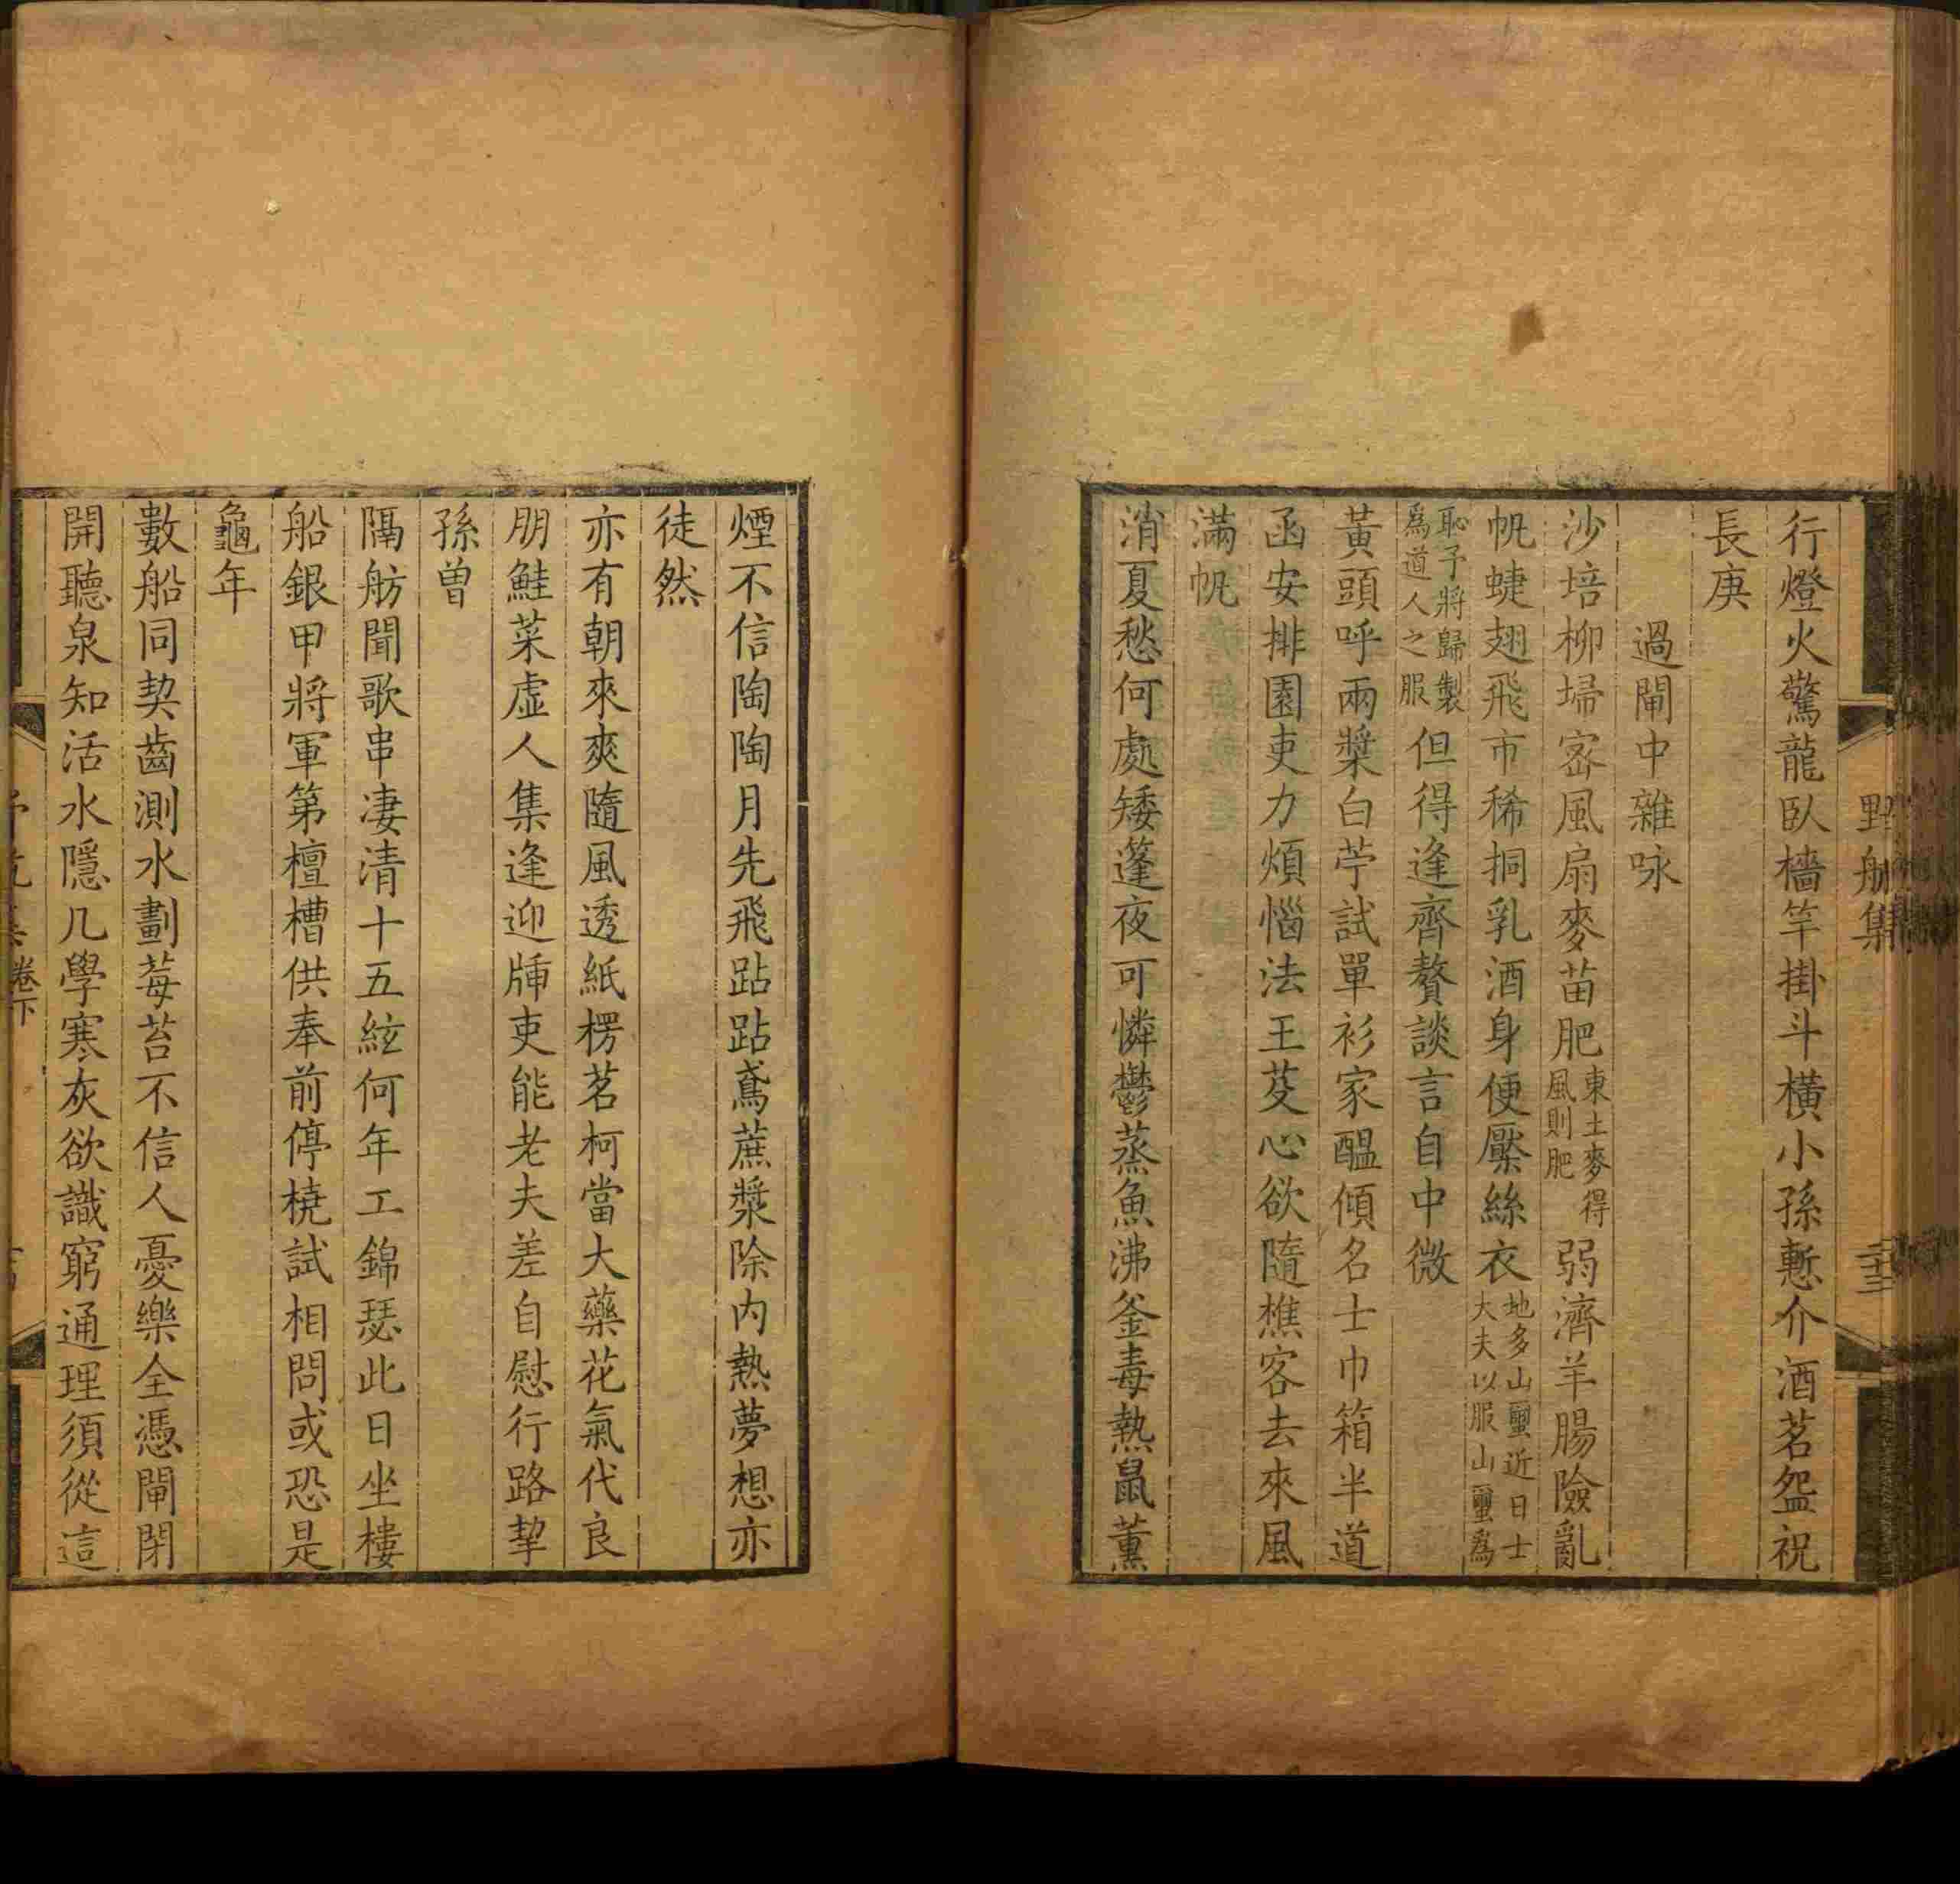 野航集
二十三
行燈火驚龍臥檣竿掛斗橫小孫慙介酒茗盌祝
長庚
過閘中雜咏
沙培柳埽密風扇麥苗肥東土麥得風則肥弱濟羊腸險亂
帆蜨翅飛市稀挏乳酒身便檿絲衣地多山蠒近日士大夫以服山蠒爲
恥予將歸製爲道人之服但得逢齊贅談言自中微
黃頭呼兩槳白苧試單衫家醞傾名士巾箱半道
函安排園吏力煩惱法王芟心欲隨樵客去來風
滿帆
消夏愁何處矮篷夜可憐鬱蒸魚沸釜毒熱鼠薰
煙不信陶陶月先飛跕跕鳶蔗漿除內熱夢想亦
徒然
亦有朝來爽隨風透紙楞茗柯當大藥花氣代良
朋鮭菜虛人集逢迎牐吏能老夫差自慰行路挈
孫曾
隔舫聞歌串凄清十五絃何年工錦瑟此日坐樓
船銀甲將軍第檀槽供奉前停橈試相問或恐是
龜年
數船同契齒測水劃莓苔不信人憂樂全憑閘閉
開聽泉知活水隱几學寒灰欲識窮通理須從這
卷下